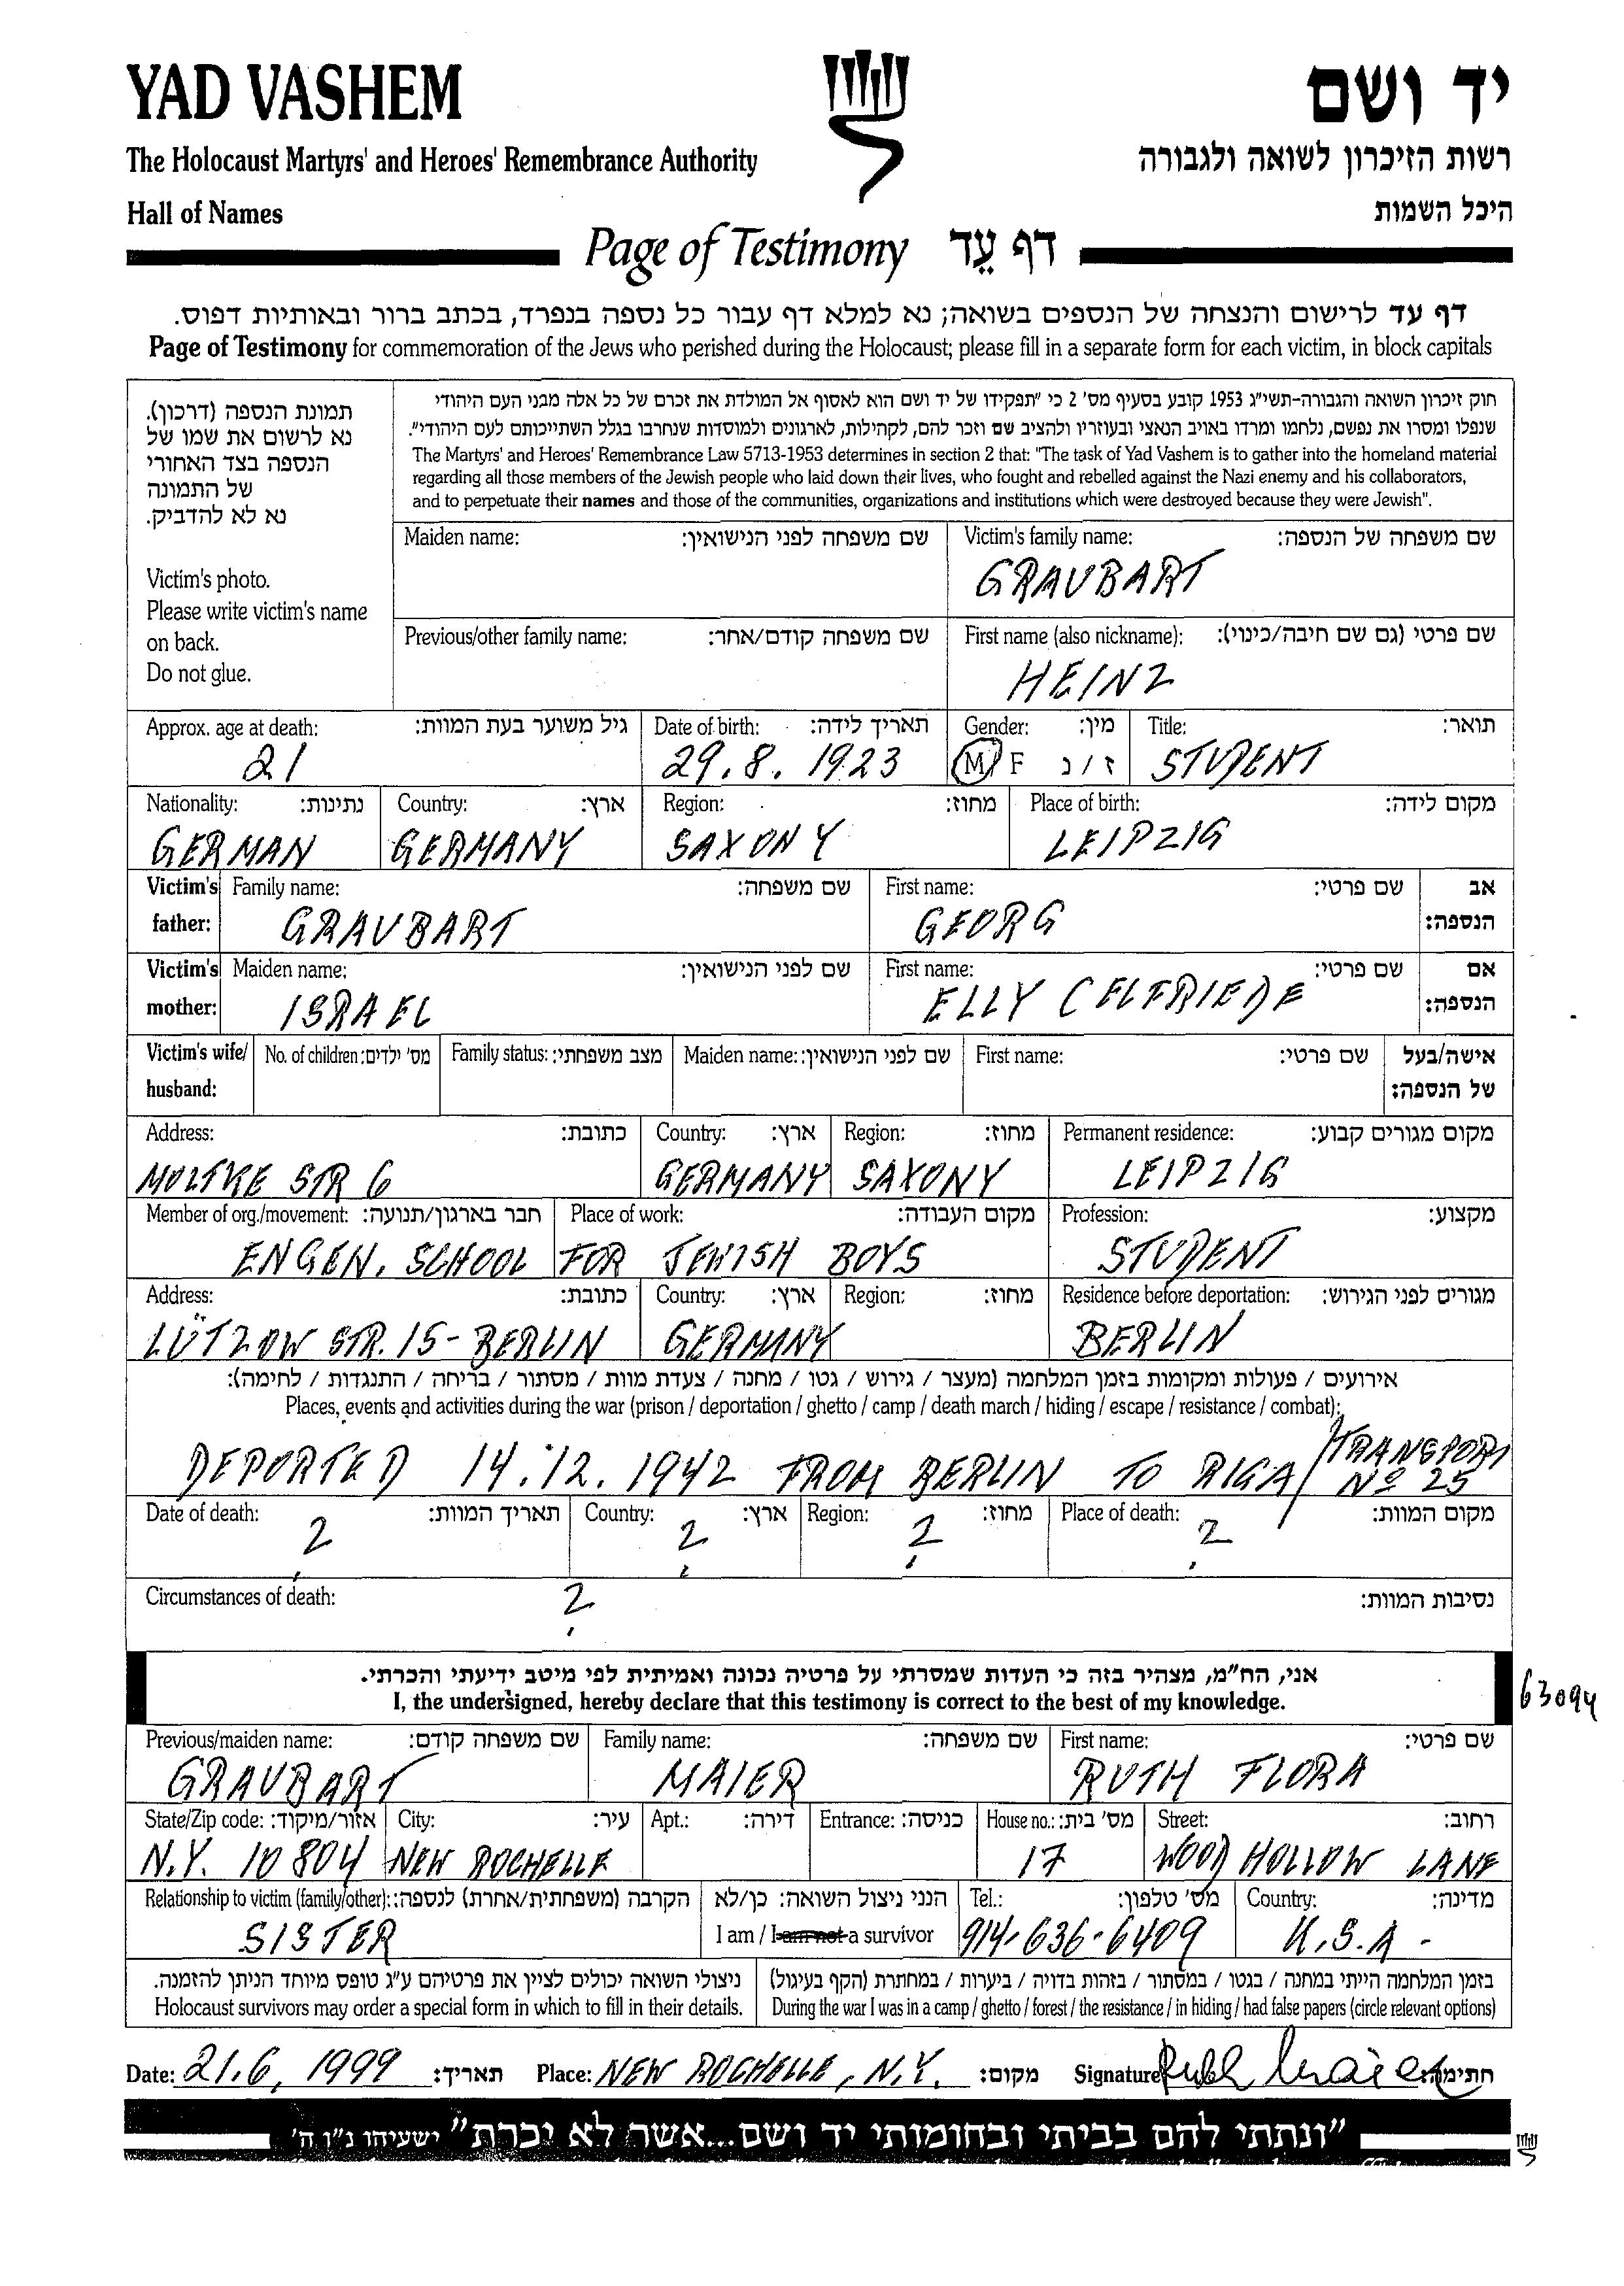 YAD VASHEM
יד ושם
The Holocaust Martyrs' and Heroes' Remembrance Authority
רשות הזיכרון לשואה ולגבורה
Hall of Names
היכל השמות
Page of Testimony דף עֵד
דף עד לרישום והנצחה של הנספים בשואה; נא למלא דף עבור כל נספה בנפרד, בכתב ברור ובאותיות דפוס.
Page of Testimony for commemoration of the Jews who perished during the Holocaust; please fill in a separate form for each victim, in block capitals
תמונת הנספה (דרכון).
נא לרשום את שמו של
הנספה בצד האחורי
של התמונה
נא לא להדביק.
Victim's photo.
Please write victim's name
on back.
Do not glue.
חוק זיכרון השואה והגבורה-תשי"ג 1953 קובע בסעיף מס' 2 כי "תפקידו של יד ושם הוא לאסוף אל המולדת את זכרם של כל אלה מבני העם היהודי
שנפלו ומסרו את נפשם, נלחמו ומרדו באויב הנאצי ובעוזריו ולהציב שם וזכר להם, לקהילות, לארגונים ולמוסדות שנחרבו בגלל השתייכותם לעם היהודי".
The Martyrs' and Heroes' Remembrance Law 5713-1953 determines in section 2 that: "The task of Yad Vashem is to gather into the homeland material
regarding all those members of the Jewish people who laid down their lives, who fought and rebelled against the Nazi enemy and his collaborators,
and to perpetuate their names and those of the communities, organizations and institutions which were destroyed because they were Jewish".
Maiden name: שם משפחה לפני הנישואין:
Victim's family name: שם משפחה של הנספה:
GRAUBART
Previous/other family name: שם משפחה קודם/אחר:
First name (also nickname): שם פרטי (גם שם חיבה/כינוי):
HEINZ
Approx. age at death: גיל משוער בעת המוות: Date of birth: תאריך לידה: Gender: מין: Title: תואר:
21 29.8.1923 M/F ז/נ STUDENT
Nationality: נתינות: Country: ארץ: Region: מחוז: Place of birth: מקום לידה:
GERMAN GERMANY SAXONY LEIPZIG
Victim's father: Family name: שם משפחה: First name: שם פרטי: אב הנספה:
GRAUBART GEORG
Victim's mother: Maiden name: שם לפני הנישואין: First name: שם פרטי: אם הנספה:
ISRAEL ELLY (ELFRIEDE
Victim's wife/ husband: No. of children: מס' ילדים: Family status: מצב משפחתי: Maiden name: שם לפני הנישואין: First name: שם פרטי: אישה/בעל של הנספה:
Address: כתובת: Country: ארץ: Region: מחוז: Permanent residence: מקום מגורים קבוע:
MOLTKE STR 6 GERMANY SAXONY LEIPZIG
Member of org./movement: חבר בארגון/תנועה: Place of work: מקום העבודה: Profession: מקצוע:
ENGEN. SCHOOL FOR JEWISH BOYS STUDENT
Address: כתובת: Country: ארץ: Region: מחוז: Residence before deportation: מגורים לפני הגירוש:
LÜTZOW STR. 15 - BERLIN GERMANY BERLIN
אירועים / פעולות ומקומות בזמן המלחמה (מעצר / גירוש / גטו / מחנה / צעדת מוות / מסתור / בריחה / התנגדות / לחימה):
Places, events and activities during the war (prison / deportation / ghetto / camp / death march / hiding / escape / resistance / combat):
DEPORTED 14.12.1942 FROM BERLIN TO RIGA / TRANSPORT
Nº 25
Date of death: תאריך המוות: Country: ארץ: Region: מחוז: Place of death: מקום המוות:
? ? ? ?
Circumstances of death: נסיבות המוות:
?
אני, הח"מ, מצהיר בזה כי העדות שמסרתי על פרטיה נכונה ואמיתית לפי מיטב ידיעתי והכרתי.
I, the undersigned, hereby declare that this testimony is correct to the best of my knowledge.
63094
Previous/maiden name: שם משפחה קודם: Family name: שם משפחה: First name: שם פרטי:
GRAUBART MAIER RUTH FLORA
State/Zip code: אזור/מיקוד: City: עיר: Apt.: דירה: Entrance: כניסה: House no.: מס' בית: Street: רחוב:
N.Y. 10804 NEW ROCHELLE 17 WOOD HOLLOW LANE
Relationship to victim (family/other): הקרבה (משפחתית/אחרת) לנספה: הנני ניצול השואה: כן/לא Tel.: מס' טלפון: Country: מדינה:
SISTER I am / I am not a survivor 914-636-6409 U.S.A -
ניצולי השואה יכולים לציין את פרטיהם ע"ג טופס מיוחד הניתן להזמנה.
Holocaust survivors may order a special form in which to fill in their details.
בזמן המלחמה הייתי במחנה / בגטו / במסתור / בזהות בדויה / ביערות / במחתרת (הקף בעיגול)
During the war I was in a camp / ghetto / forest / the resistance / in hiding / had false papers (circle relevant options)
Date: 21.6.1999 תאריך: Place: NEW ROCHELLE, N.Y. מקום: Signature: Ruth Maier חתימה:
"ונתתי להם בביתי ובחומותי יד ושם...אשר לא יכרת" ישעיהו נ"ו ה'